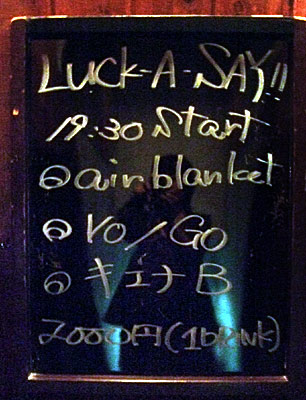 LUCK-A-SAY!!
19:30 Start
@airblanket
@YO/GO
@キエナB
2000円(1DRINK)